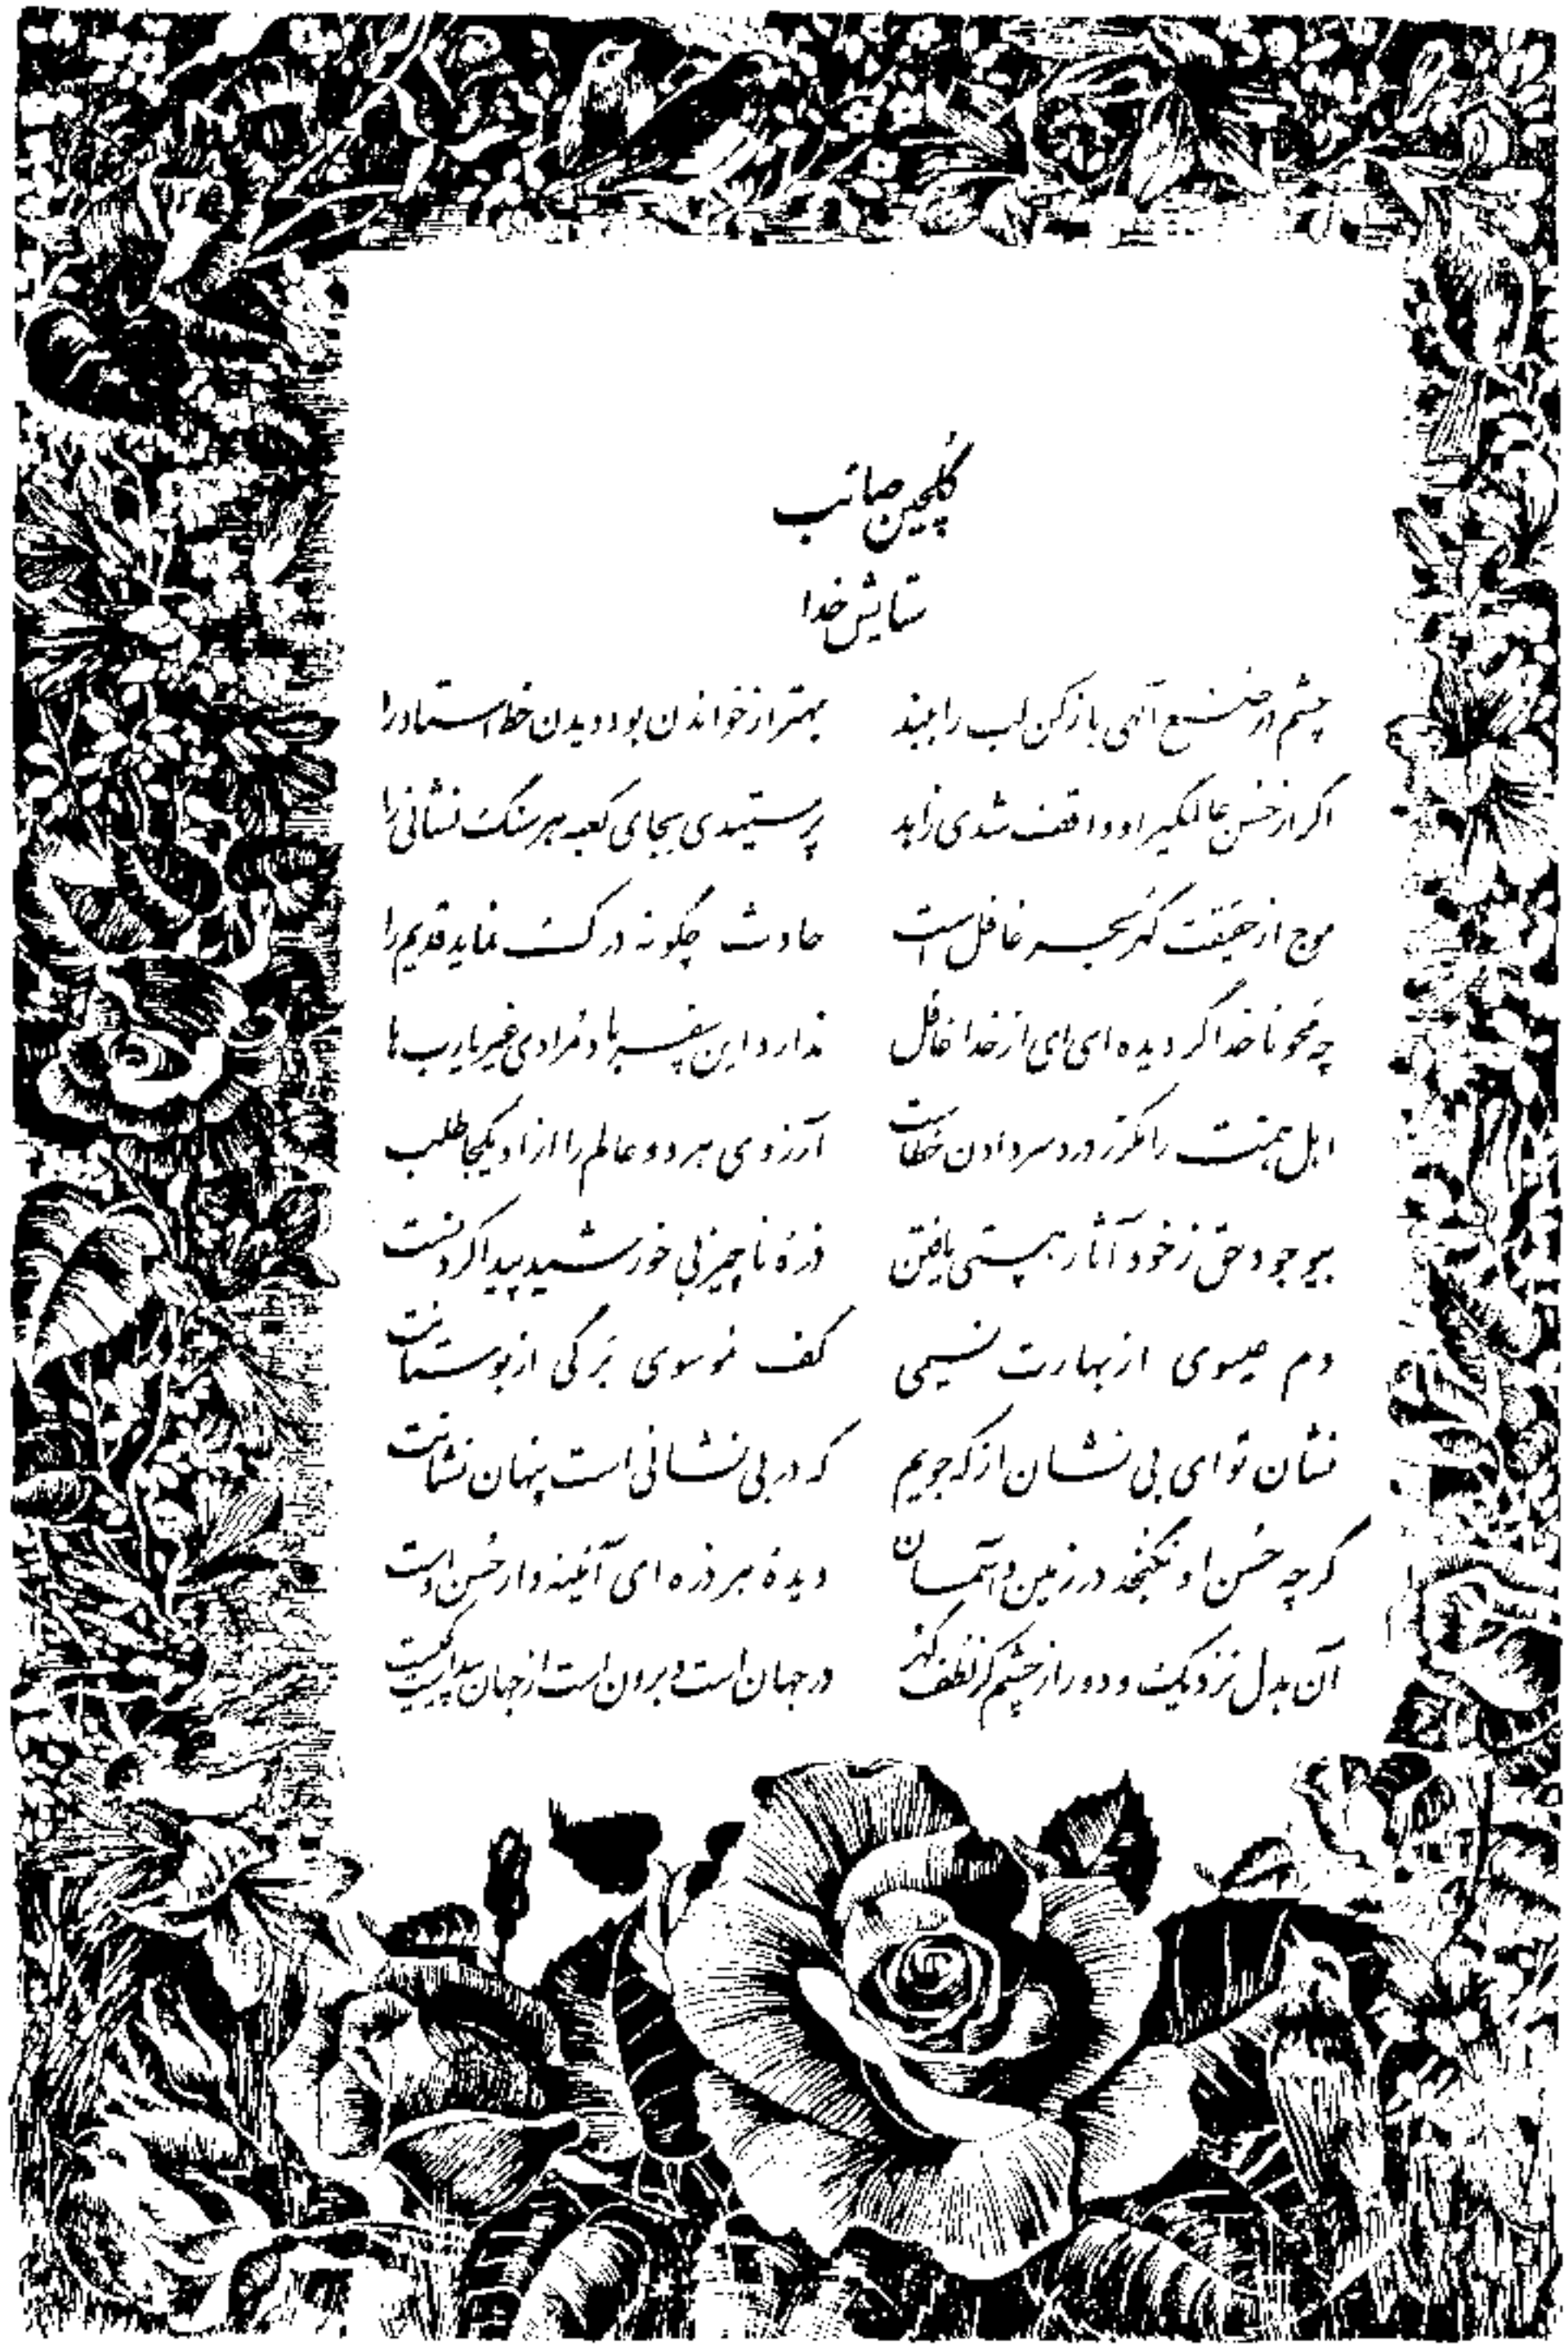 گلچین صائب
ستایش خدا
چشم در صنع الهی باز کن لب را ببند بهتر از خواندن بود دیدن خط استاد را
اگر از حسن عالمگیر او واقف شدی زاهد پرستیدی بجای کعبه هر سنگ نشانی را
موج از حقیقت گهر بحر غافل است حادث چگونه درک نماید قدیم را
چه محو ناخدا گردیده ای ای از خدا غافل ندارد این سفر باد مرادی غیر یارب ها
اهل همت را مکرر دردسر دادن خطاست آرزوی هر دو عالم را ازاو یکجا طلب
بیوجود حق ز خود آثار هستی یافتن ذرهٔ ناچیز بی خورشید پیدا کردنست
دم عیسوی از بهارت نسیمی کف موسوی برگی از بوستانت
نشان تو ای بی نشان از که جویم که در بی نشانی است پنهان نشانت
گرچه حسن او نگنجد در زمین و آسمان دیدهٔ هر ذره ای آئینه دار حسن اوست
آن بدل نزدیک و دور از چشم کز لطف گهر در جهان است و برون است از جهان پیداست کیست